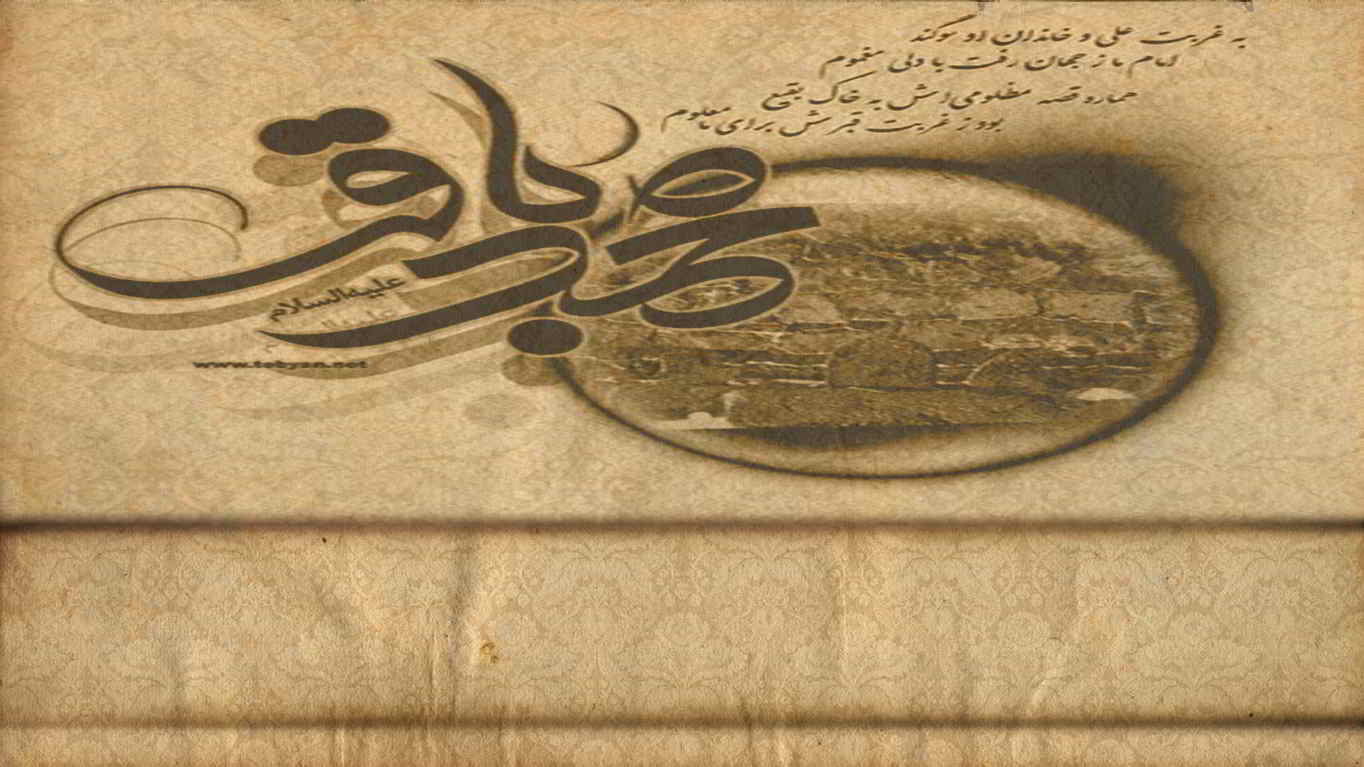 به غربت علی و خاندان او سوگند
امام ما ز جهان رفت با دلی مغموم
هماره قصه مظلومی اش به خاک بقیع
بود ز غربت قبرش برای ما معلوم
محمد باقر
علیه السلام
www.tebyan.net